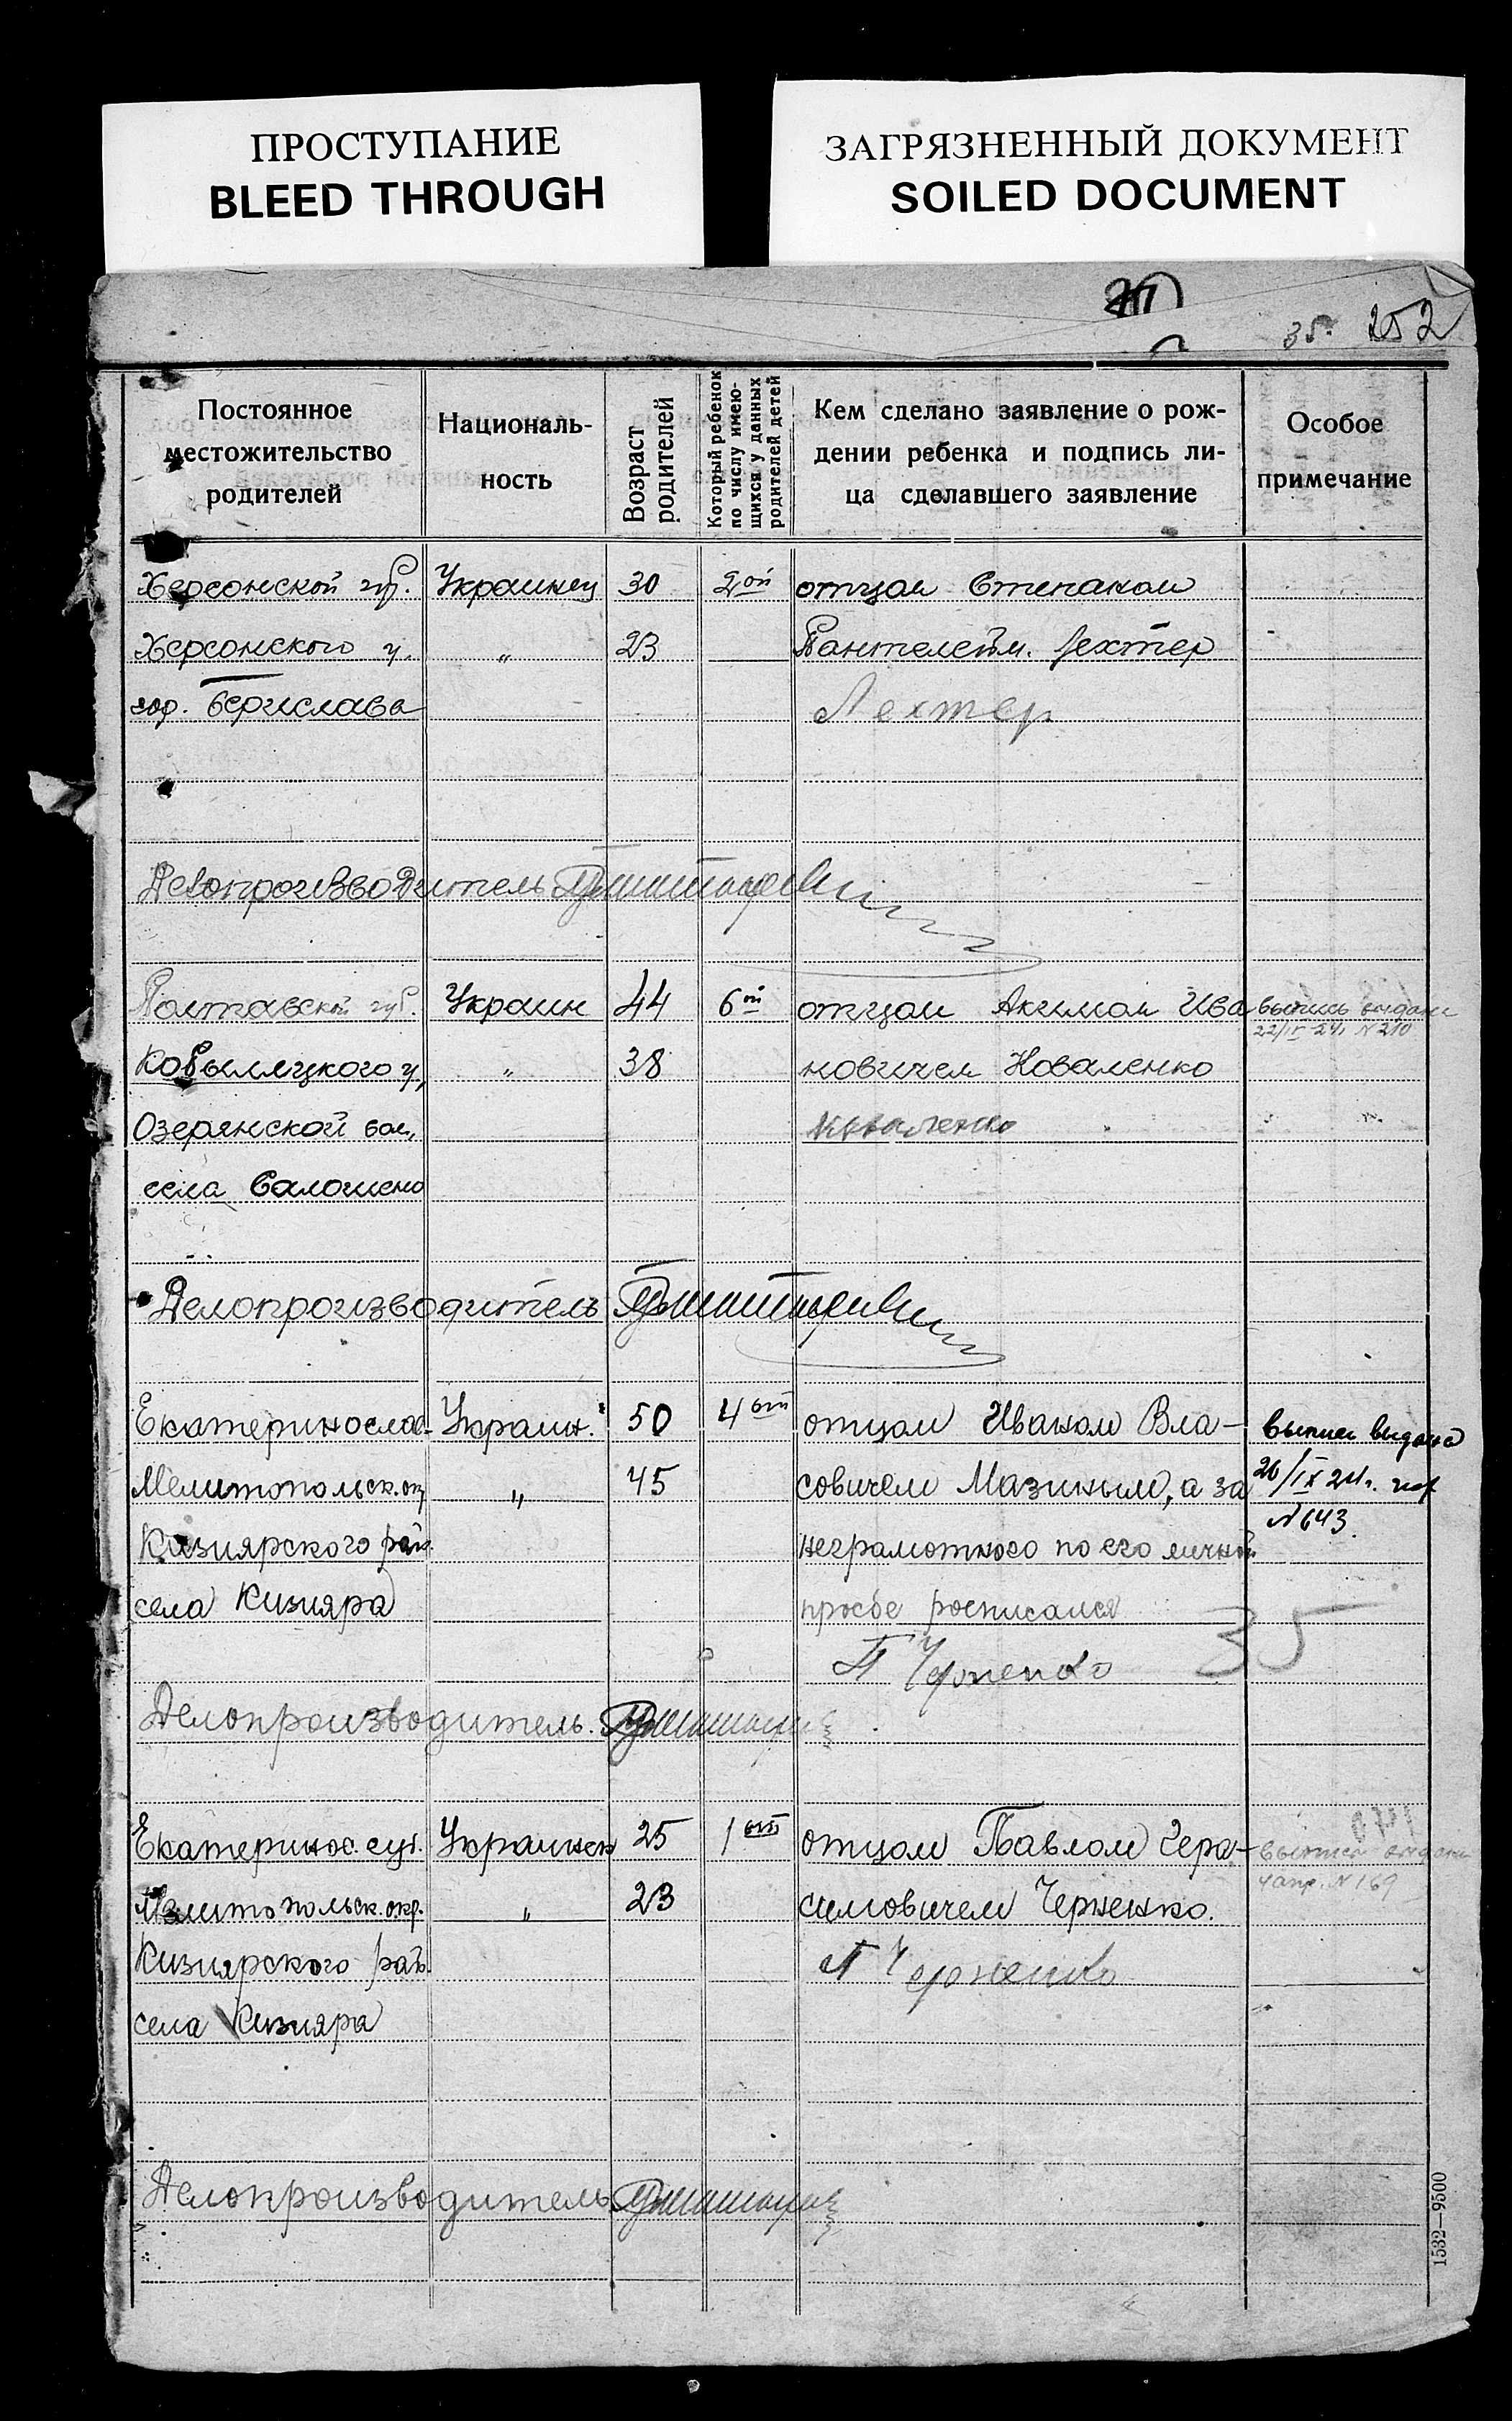 ПРОСТУПАНИЕ
BLEED THROUGH
ЗАГРЯЗНЕННЫЙ ДОКУМЕНТ
SOILED DOCUMENT
35. 252
Постоянное
местожительство
родителей
Националь-
ность
Возраст
родителей
Который ребенок
по числу имею-
щихся у данных
родителей детей
Кем сделано заявление о рож-
дении ребенка и подпись ли-
ца сделавшего заявление
Особое
примечание
Херсонской губ. Украинец 30 2ой отцом Степаном
Херсонского у. „ 23 Пантелейм. Лехтер
гор. Берислава Лехтер
Делопроизводитель
Полтавской губ. Украин 44 6ой отцом Акимом Ива выпись выдана
22/IV-24г N 210
Кобыляцкого у, „ 38 новичем Коваленко
Озерянской вол, Коваленко
села
Делопроизводитель
Екатеринослав- Украин. 50 4ый отцом Иваном Вла- Выпись выдана
Мелитопольск. ок „ 45 совичем Мазиным, а за 26/IX 24г.
N 643.
Кизиярского рай. неграмотного по его личной
села Кизияра просьбе росписался
П Черненко 35
Делопроизводитель.
Екатеринос. губ. Украинец 25 1ый отцом Павлом Гера- Выпись выдана
4 апр. N 169
Мелитопольск. окр. „ 23 симовичем Черненко.
Кизиярского рай. П Черненко
села Кизияра
Делопроизводитель
1532—9500